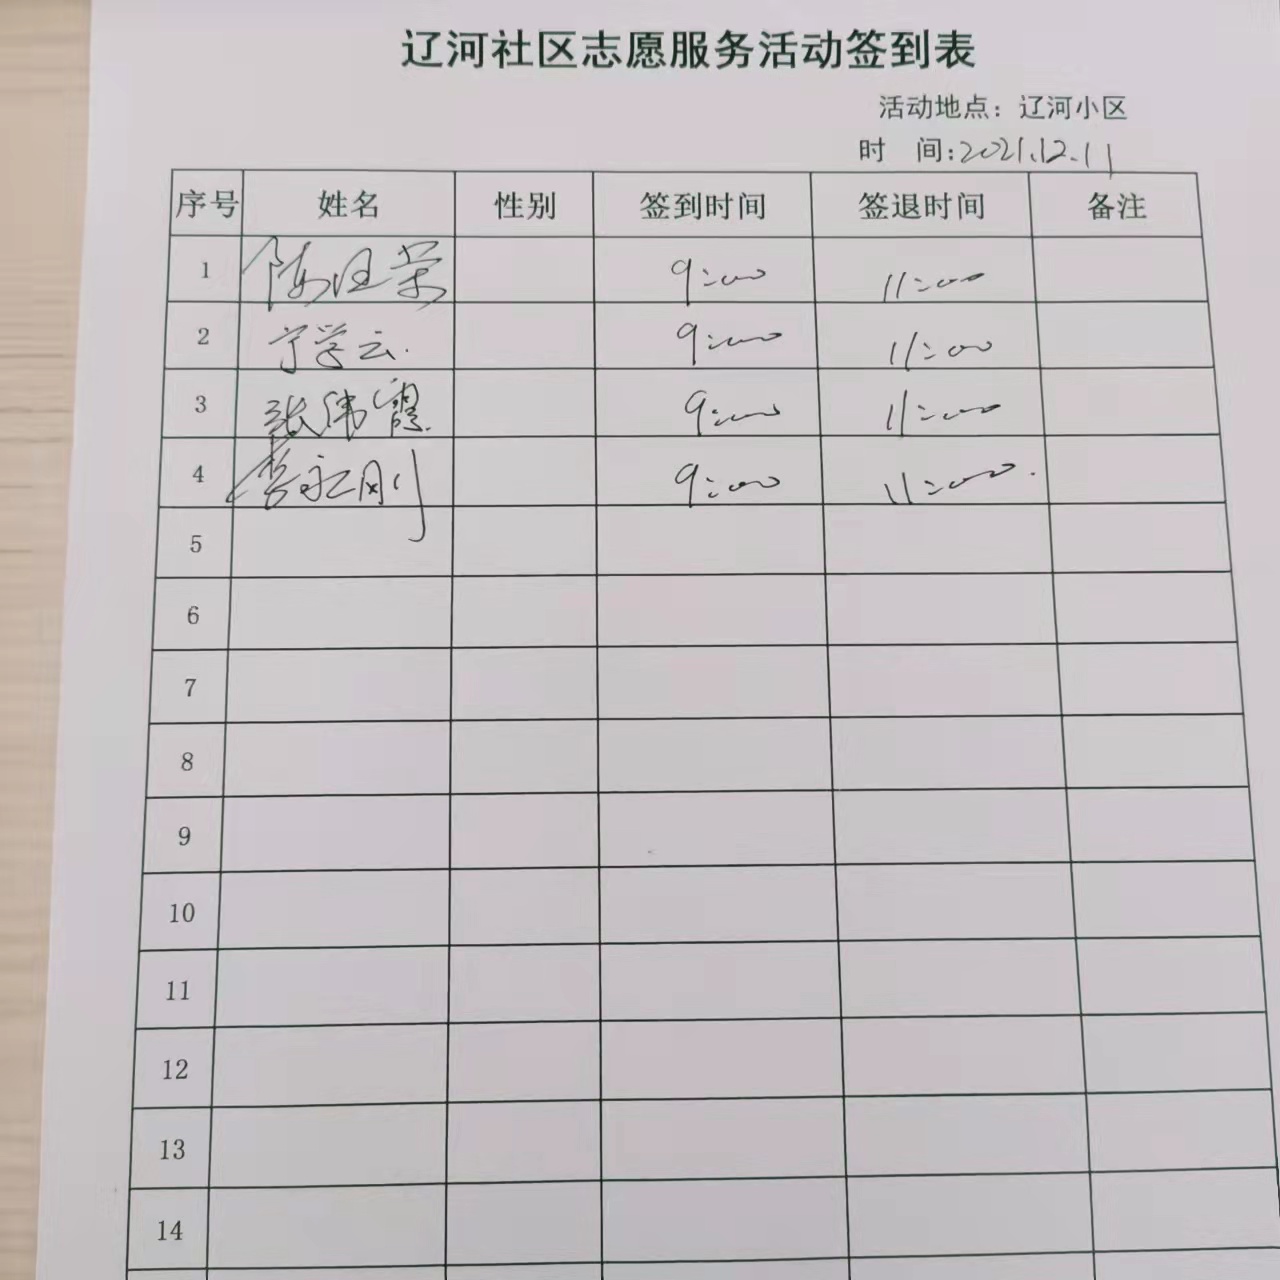 辽河社区志愿服务活动签到表
活动地点：辽河小区
时 间:2021.12.11
序号 姓名 性别 签到时间 签退时间 备注
1 陈 荣 9:00 11:00
2 宁学云. 9:00 11:00
3 张伟霞. 9:00 11:00
4 李永刚 9:00 11:00.
5
6
7
8
9
10
11
12
13
14